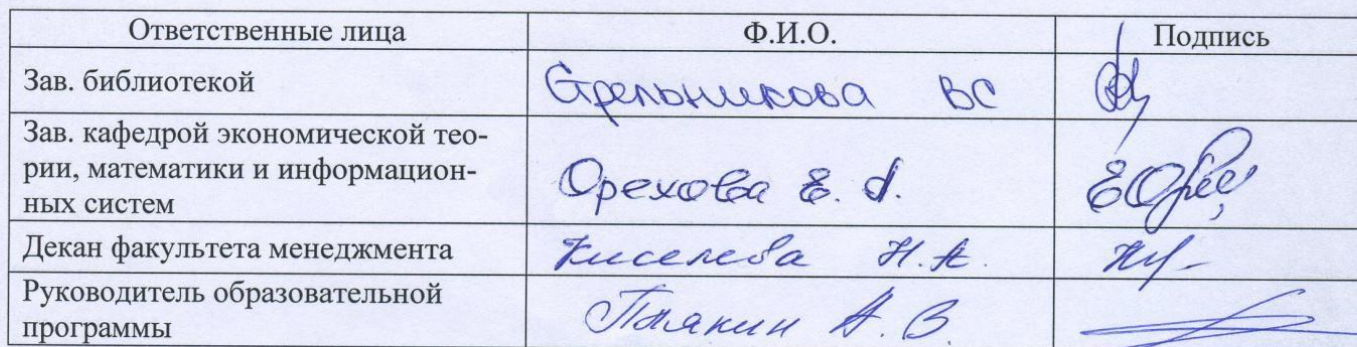 Ответственные лица Ф.И.О. Подпись
Зав. библиотекой Стрельникова ВС
Зав. кафедрой экономической тео-
рии, математики и информацион-
ных систем Орехова Е. А.
Декан факультета менеджмента Киселева Н.А.
Руководитель образовательной
программы А. В.